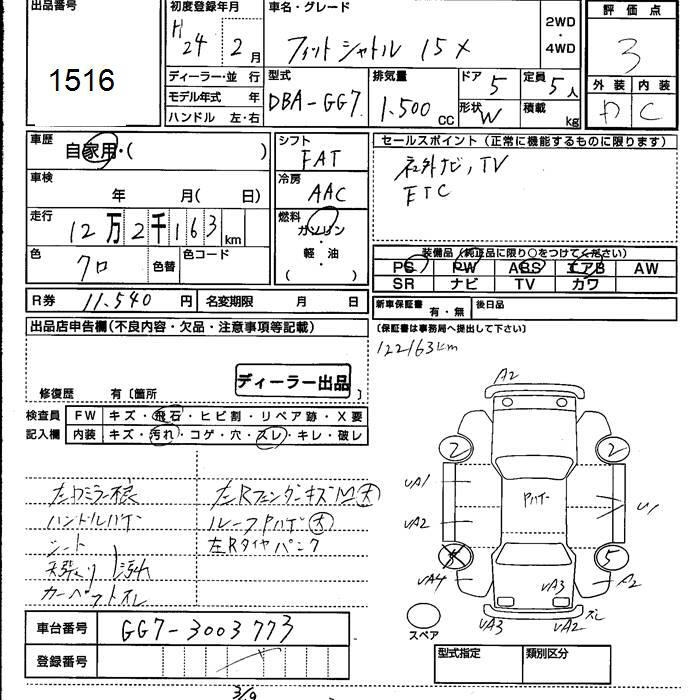 出品番号
1516
初度登録年月
H 24年 2月
車名・グレード
フィットシャトル 15X
2WD
・
4WD
評価点
3
外装 内装
D C
ディーラー・並 行
モデル年式 年
ハンドル 左・右
型式
DBA-GG7
排気量
1.500 CC
ドア 5
定員 5人
形状 W
積載 kg
車歴
自家用・( )
車検
年 月( 日)
走行
12万2千163km
色
クロ
色替
色コード
シフト
FAT
冷房
AAC
燃料
ガソリン
・
軽・油
( )
セールスポイント(正常に機能するものに限ります)
社外ナビ,TV
ETC
装備品(純正品に限り○をつけてください)
PS PW ABS エアB AW
SR ナビ TV カワ
R券 11.540円
名変期限 月 日
新車保証書 有・無
後日品
〔保証書は事務局へ提出して下さい〕
122163km
出品店申告欄(不良内容・欠品・注意事項等記載)
ディーラー出品
修復歴 有〔箇所 〕
検査員
記入欄
FW キズ・飛石・ヒビ割・リペア跡・X要
内装 キズ・汚れ・コゲ・穴・スレ・キレ・破レ
左ドアミラー損
ハンドルハゲ
シート
天張り 汚れ
カーペットスレ
左Rフェンダーキズ M大
ルーフPハゲ 大
左Rタイヤパンク
A2
2
2
UA1
UA2
Pハゲ
U1
5
UA4
UA3
A2
スペア
UA3
UA2
スレ
車台番号 GG7-3003773
登録番号
型式指定
類別区分
3/9